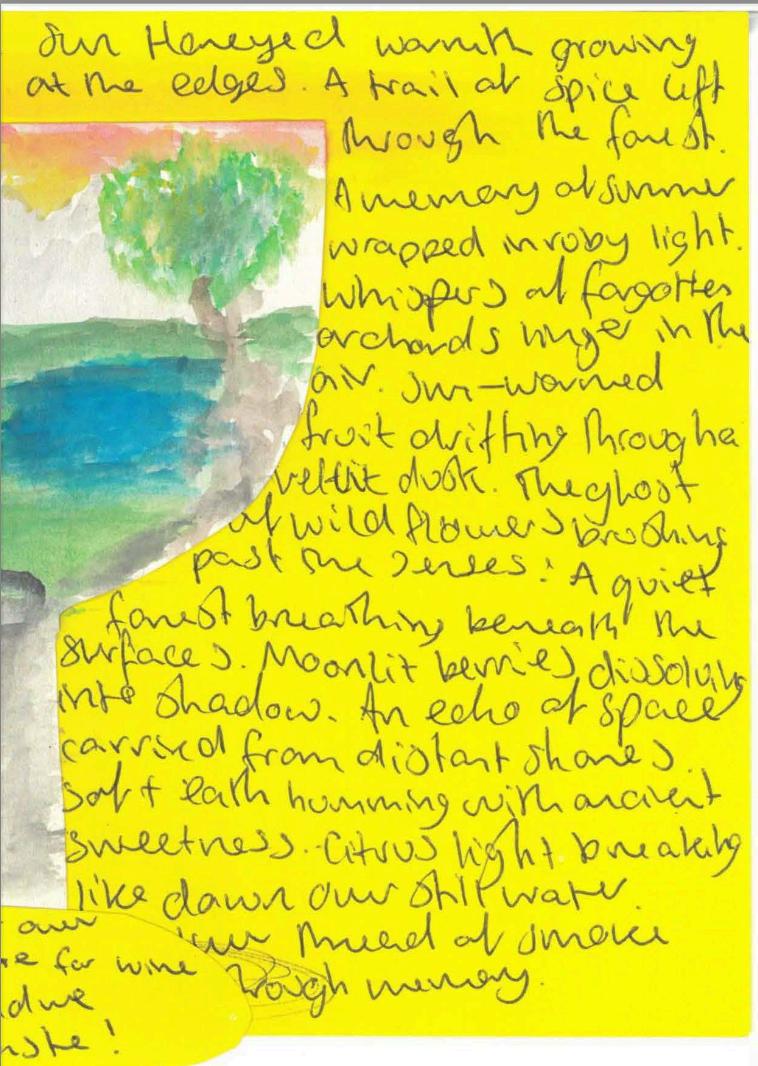 Sun Honeyed warmth growing
at the edges. A trail of spice left
through the forest.
A memory of summer
wrapped in ruby light.
Whispers of forgotten
orchards linger in the
air. Sun-warmed
fruit drifting through a
dusk. The ghost
of wild flowers brushing
past the senses. A quiet
forest breathing beneath the
surfaces. Moonlit berries dissolving
into shadow. An echo of space
carried from distant shores.
Soft earth humming with ancient
sweetness. Citrus light breaking
like dawn over still water.
thread of smoke
through memory.
for wine